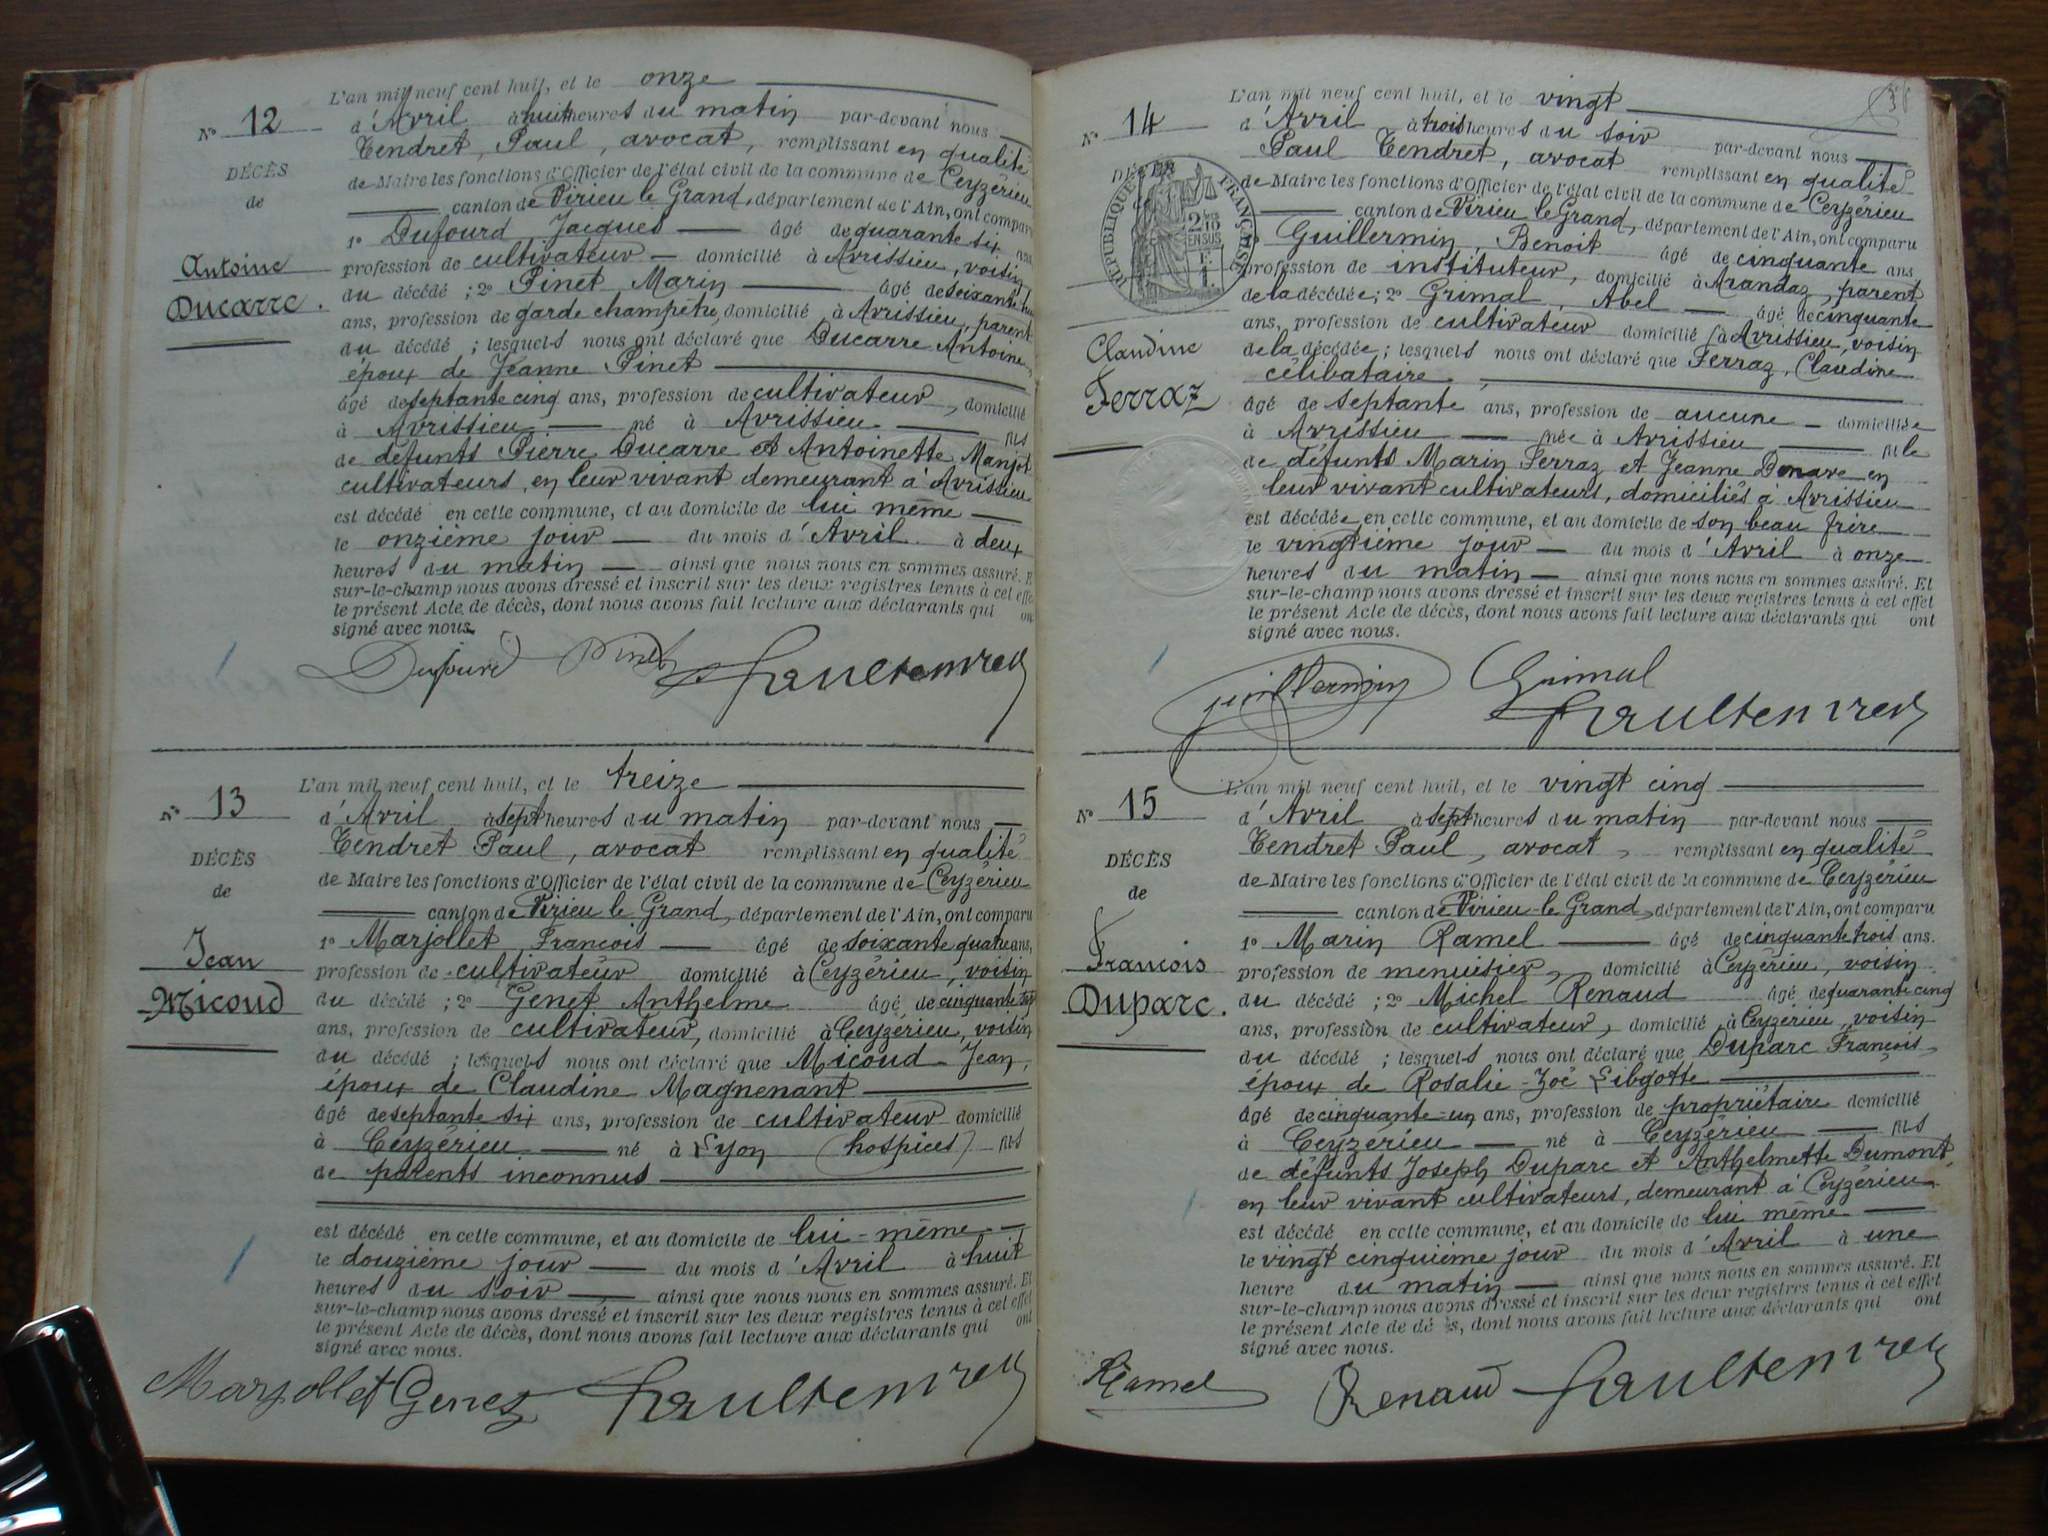 L'an mil neuf cent huit, et le onze
N° 12
d'Avril à huit heures du matin par-devant nous
Tendret, Paul, avocat, remplissant en qualité
DÉCÈS
de Maire les fonctions d'Officier de l'état civil de la commune de Ceyzérieu
de
canton de Virieu le Grand, département de l'Ain, ont comparu
1° Dufourd Jacques âgé de quarante six ans
Antoine
profession de cultivateur domicilié à Avrissieu, voisin
Ducarre.
du décédé ; 2° Pinet Marin âgé de
ans, profession de garde champêtre, domicilié à Avrissieu, parent
du décédé ; lesquels nous ont déclaré que Ducarre Antoine,
époux de Jeanne Pinet
âgé de septante cinq ans, profession de cultivateur, domicilié
à Avrissieu né à Avrissieu fils
de défunts Pierre Ducarre et Antoinette Manjot
cultivateurs, en leur vivant demeurant à Avrissieu
est décédé en cette commune, et au domicile de lui même
le onzième jour du mois d'Avril à deux
heures du matin ainsi que nous nous en sommes assuré. E
sur-le-champ nous avons dressé et inscrit sur les deux registres tenus à cet effe
le présent Acte de décès, dont nous avons fait lecture aux déclarants qui on
signé avec nous.
Dufourd Pinet Paul Tendret
L'an mil neuf cent huit, et le treize
N° 13
d'Avril à sept heures du matin par-devant nous
Tendret Paul, avocat remplissant en qualité
DÉCÈS
de Maire les fonctions d'Officier de l'état civil de la commune de Ceyzérieu
de
canton de Virieu le Grand, département de l'Ain, ont comparu
1° Marjollet, François âgé de soixante quatre ans,
Jean
profession de cultivateur domicilié à Ceyzérieu, voisin
Micoud
du décédé ; 2° Genet Anthelme âgé de cinquante
ans, profession de cultivateur, domicilié à Ceyzérieu, voisin
du décédé ; lesquels nous ont déclaré que Micoud Jean,
époux de Claudine Magnenant
âgé de septante six ans, profession de cultivateur domicilié
à Ceyzérieu né à Lyon (hospices) fils
de parents inconnus
est décédé en cette commune, et au domicile de lui-même
le douzième jour du mois d'Avril à huit
heures du soir ainsi que nous nous en sommes assuré. Et
sur-le-champ nous avons dressé et inscrit sur les deux registres tenus à cet effet
le présent Acte de décès, dont nous avons fait lecture aux déclarants qui ont
signé avec nous.
Marjollet Genet Paul Tendret
L'an mil neuf cent huit, et le vingt
N° 14
d'Avril à trois heures du soir par-devant nous
Paul Tendret, avocat remplissant en qualité
DÉCÈS
de Maire les fonctions d'Officier de l'état civil de la commune de Ceyzérieu
RÉPUBLIQUE FRANÇAISE
2/10 EN SUS
1 F.
canton de Virieu le Grand, département de l'Ain, ont comparu
Guillermin, Benoit âgé de cinquante ans
profession de instituteur, domicilié à Arandaz, parent
de la décédée ; 2° Grimal, Abel âgé de cinquante
ans, profession de cultivateur domicilié à Avrissieu, voisin
Claudine
de la décédée ; lesquels nous ont déclaré que Ferraz, Claudine
célibataire,
Ferraz
âgé de septante ans, profession de aucune domiciliée
à Avrissieu née à Avrissieu fille
de défunts Marin Ferraz et Jeanne en
leur vivant cultivateurs, domiciliés à Avrissieu
est décédée en cette commune, et au domicile de son beau frère
le vingtième jour du mois d'Avril à onze
heures du matin ainsi que nous nous en sommes assuré. Et
sur-le-champ nous avons dressé et inscrit sur les deux registres tenus à cet effet
le présent Acte de décès, dont nous avons fait lecture aux déclarants qui ont
signé avec nous.
Guillermin Grimal Paul Tendret
L'an mil neuf cent huit, et le vingt cinq
N° 15
d'Avril à sept heures du matin par-devant nous
Tendret Paul, avocat, remplissant en qualité
DÉCÈS
de Maire les fonctions d'Officier de l'état civil de la commune de Ceyzérieu
de
canton de Virieu-le Grand, département de l'Ain, ont comparu
1° Marin Ramel âgé de cinquante trois ans.
François
profession de menuisier, domicilié à Ceyzérieu, voisin
Duparc.
du décédé ; 2° Michel Renaud âgé de quarante cinq
ans, profession de cultivateur, domicilié à Ceyzérieu, voisin
du décédé ; lesquels nous ont déclaré que Duparc François,
époux de Rosalie-Zoé Libgotte
âgé de cinquante-un ans, profession de propriétaire domicilié
à Ceyzérieu né à Ceyzérieu fils
de défunts Joseph Duparc et Anthelmette Dumont,
en leur vivant cultivateurs, demeurant à Ceyzérieu
est décédé en cette commune, et au domicile de lui même
le vingt cinquième jour du mois d'Avril à une
heure du matin ainsi que nous nous en sommes assuré. Et
sur-le-champ nous avons dressé et inscrit sur les deux registres tenus à cet effet
le présent Acte de décès, dont nous avons fait lecture aux déclarants qui ont
signé avec nous.
Ramel Renaud Paul Tendret